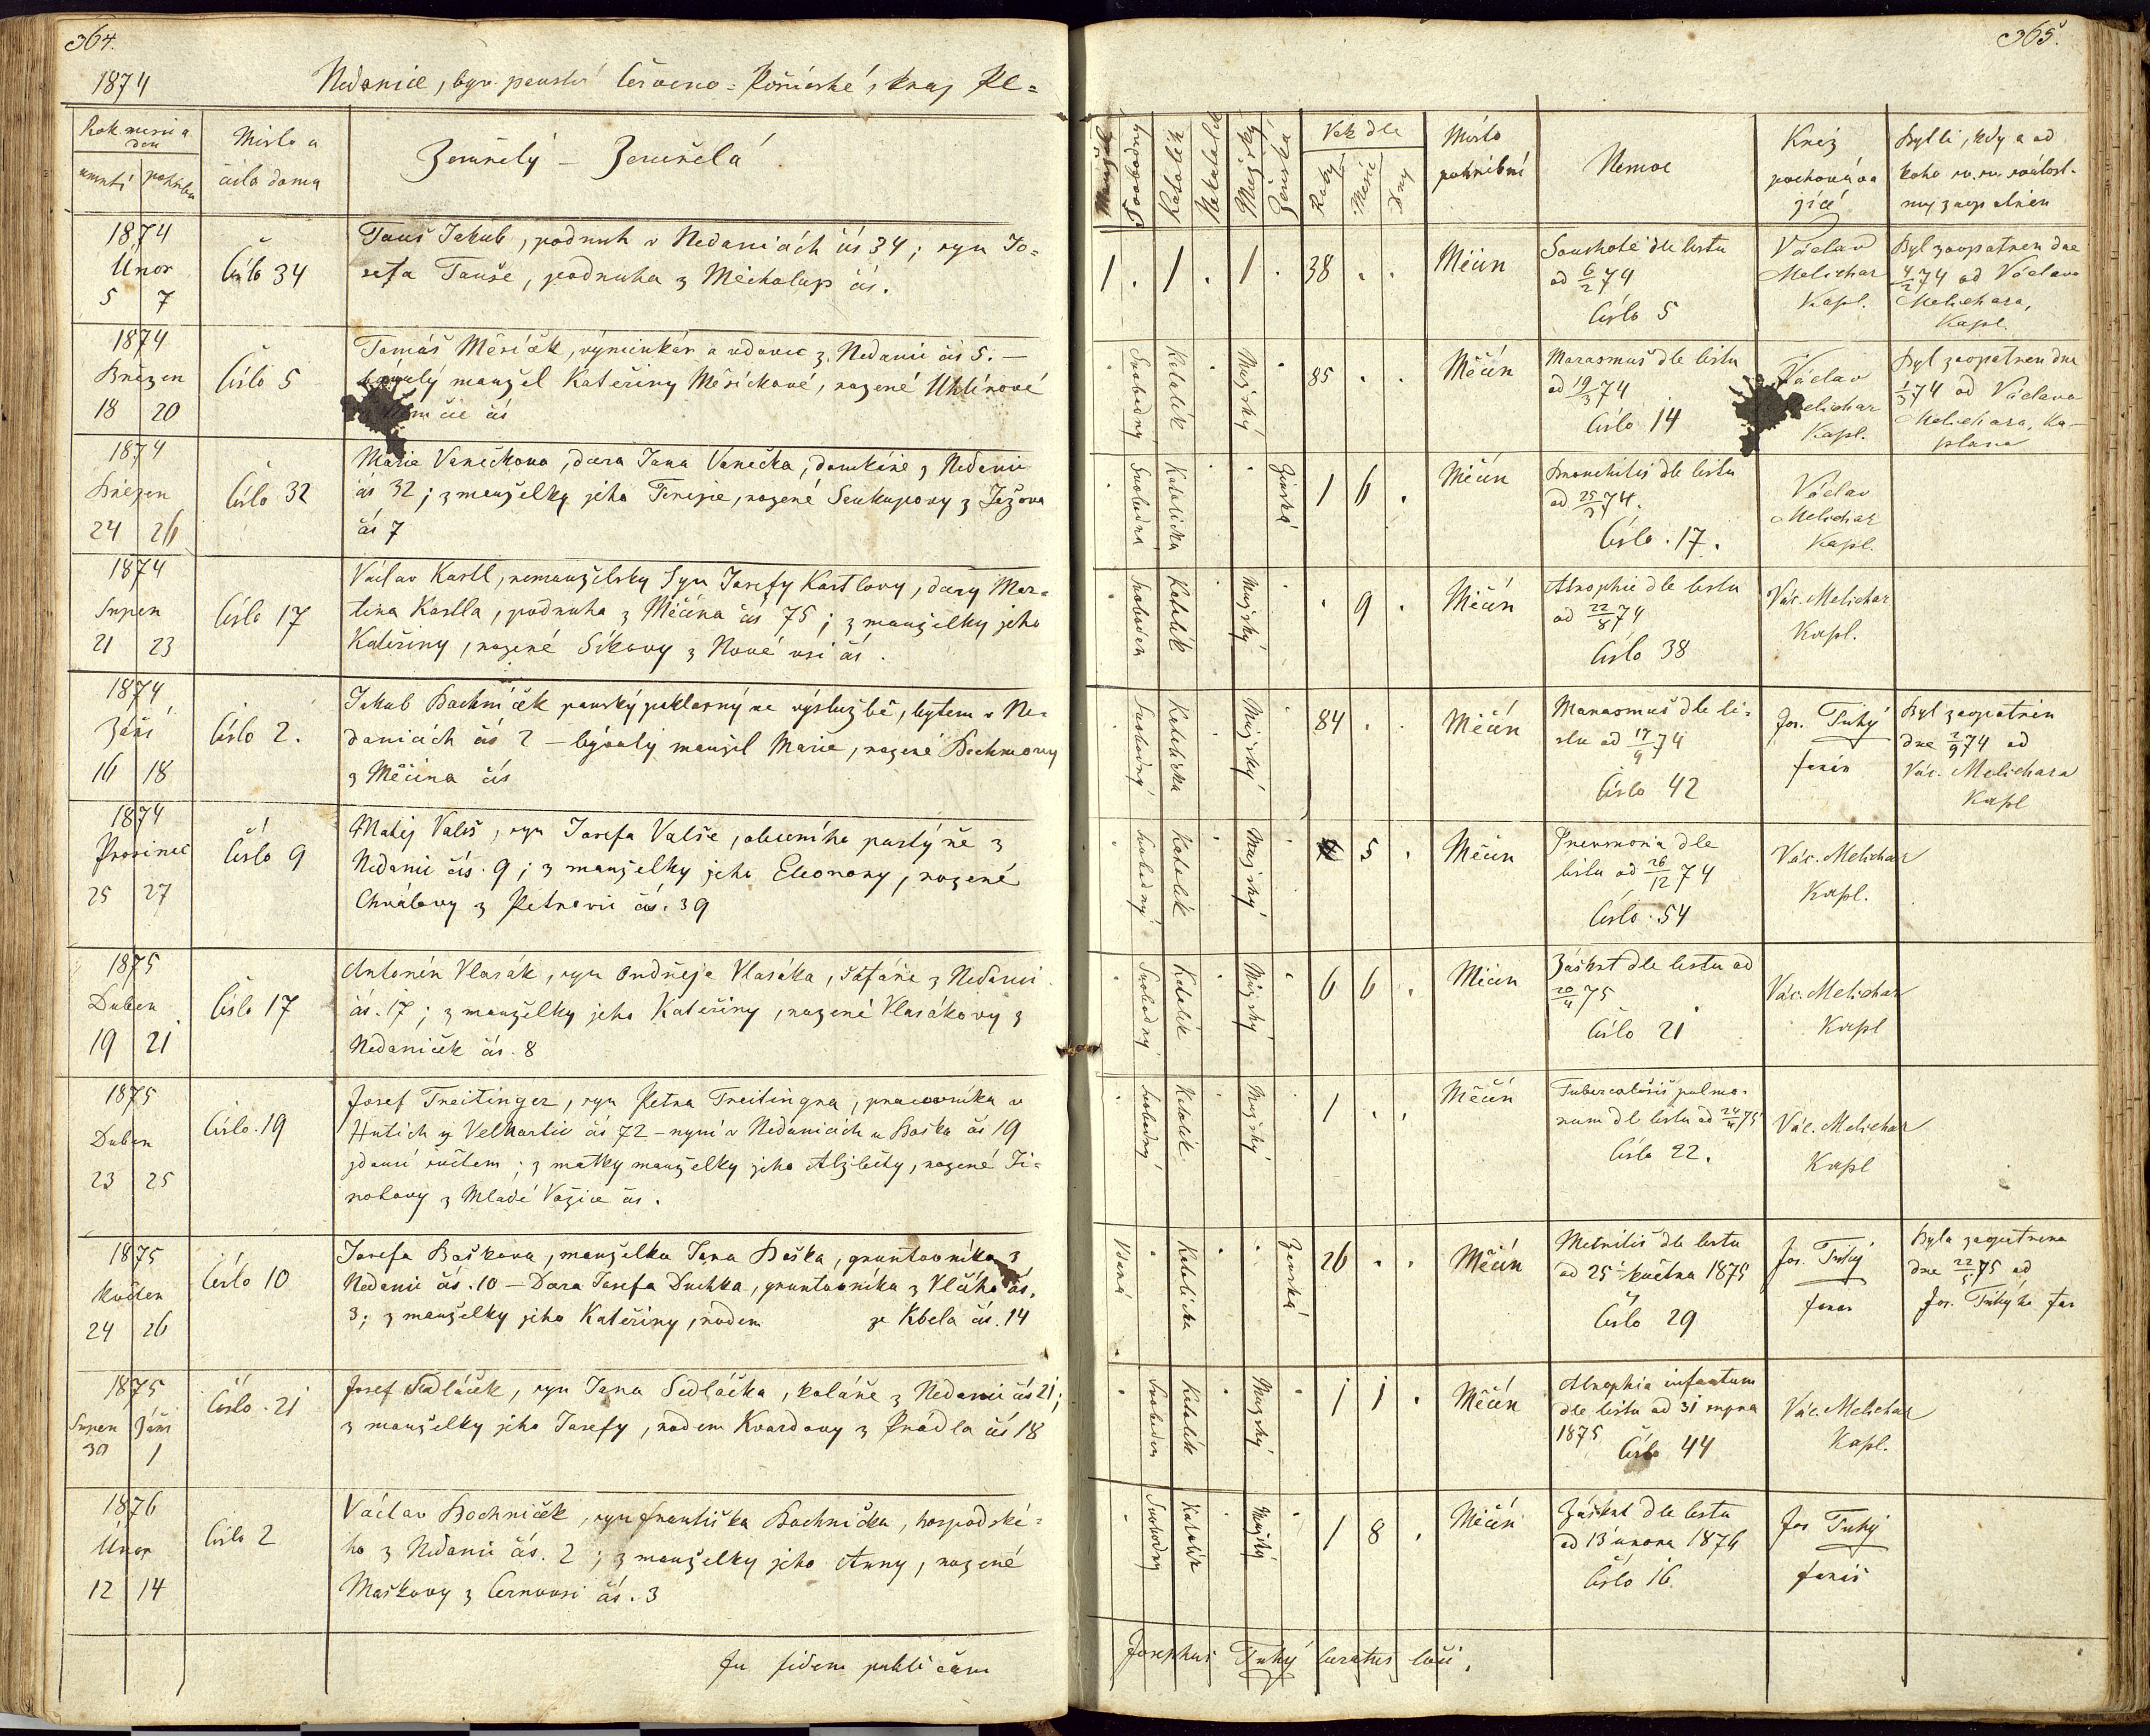 364.
1874
Nedanice, byv. panství Červeno-Poříčské, kraj Pl=
Rok měsíc a
den
úmrtí pohřbu
Místo a
číslo domu
Zemřelý – Zemřelá
1874
Únor
5 7
Číslo 34
Tauš Jakub, podruh v Nedanicích čís 34; syn Jo=
sefa Tauše, podruha z Měcholup čís.
1874
Březen
18 20
Číslo 5
Tomáš Měsíček, výminkář a vdovec z Nedanic čís 5. –
bývalý manžel Kateřiny Měsíčkové, rozené Uhlírové
čís
1874
Březen
24 26
Číslo 32
Marie Vanečkova, dcera Jana Vanečka, domkáře z Nedanic
čís 32; z manželky jeho Terezie, rozené Soukupovy z Ježova
čís 7
1874
Srpen
21 23
Číslo 17
Václav Kastl, nemanželský syn Josefy Kastlovy, dcery Mar=
tina Kastla, podruha z Měčína čís 75; z manželky jeho
Kateřiny, rozené Síkovy z Nové vsi čís.
1874
Září
16 18
Číslo 2.
Jakub Bachníček panský poklasný ve výslužbě, bytem v Ne=
danicích čís 2 – bývalý manžel Marie, rozené
z Měčína čís
1874
Prosinec
25 27
Číslo 9
Matěj Valeš, syn Josefa Valše, obecního pastýře z
Nedanic čís. 9; z manželky jeho Eleonory, rozené
Chválovy z Petrovic čís. 39
1875
Duben
19 21
Číslo 17
Antonín Vlasák, syn Ondřeje Vlasáka, šafáře z Nedanic
čís. 17; z manželky jeho Kateřiny, rozené Vlasákovy z
Nedaniček čís. 8
1875
Duben
23 25
Číslo 19
Josef Treitinger, syn Petra Treitingra, pracovníka v
Hutích čís 72 – nyní v Nedanicích u Baška čís 19
; z matky manželky jeho Alžběty, rozené Ji=
z Mladé Vožice čís.
1875
Květen
24 26
Číslo 10
Josefa Baškova, manželka Jana Baška, gruntovníka z
Nedanic čís. 10 – Dcera Josefa Duchka, gruntovníka z Vlčího čís.
3; z manželky jeho Kateřiny, rodem ze Kbela čís. 14
1875
Srpen Září
30 1
Číslo 21
Josef Sedláček, syn Jana Sedláčka, koláře z Nedanic čís 21;
z manželky jeho Josefy, rodem Kvardovy z Prádla čís 18
1876
Únor
12 14
Číslo 2
Václav Bachníček, syn Františka Bachníčka, hospodské=
ho z Nedanic čís. 2; z manželky jeho Anny, rozené
Maškovy z Černovsi čís. 3
In fidem publicam
365.
Mužský
Ženská
Věk dle
Roky
Měsíc
Dny
Místo
pohřbení
Nemoc
Kněz
pochováva
jící
Byl li, kdy a od
koho sv. sv. svátost-
mi zaopatřen
1 . 1 . 1 . 38 . .
Měčín
Souchotě dle listu
od 6/2 74
Číslo 5
Václav
Melichar
Kapl.
Byl zaopatřen dne
4/2 74 od Václava
Melichara,
Kapl.
Svobodný Katolík Mužský 85 . .
Měčín
Marasmus dle listu
od 19/3 74
Číslo 14
Václav
Melichar
Kapl.
Byl zaopatřen dne
1/3 74 od Václava
Melichara, ka-
plana
Svobodná Katolická Ženská 1 6 .
Měčín
Bronchitis dle listu
od 25/3 74.
Číslo 17.
Václav
Melichar
Kapl.
Svoboden Katolík Mužský . 9 .
Měčín
Atrophie dle listu
od 22/8 74
Číslo 38
Vác. Melichar
Kapl.
Svobodný Katolická Mužský 84 . .
Měčín
Marasmus dle li-
stu od 17/9 74
Číslo 42
Jos. Tuhý
farář
Byl zaopatřen
dne 2/9 74 od
Vác. Melichara
Kapl
Svobodný Katolík Mužský 5 .
Měčín
Pneumonia dle
listu od 26/12 74
Číslo 54
Vác. Melichar
Kapl.
Svobodný Katolík Mužský 6 6 .
Měčín
Záškrt dle listu od
20/4 75
Číslo 21
Vác. Melichar
Kapl
Svobodný Katolík Mužský 1 . .
Měčín
Tuberculosis pulmo-
num dle listu od 24/4 75
Číslo 22.
Vác. Melichar
Kapl
Vdaná Katolická Ženská 26 . .
Měčín
Metritis dle listu
od 25 května 1875
Číslo 29
Jos. Tuhý
farář
Byla zaopatřena
dne 22/5 75 od
Jos. Tuhýho, far
Svoboden Katolík Mužský 1 1 .
Měčín
Atrophia infantum
dle listu od 31 srpna
1875
Číslo 44
Vác. Melichar
Kapl.
Svobodný Katolík Mužský 1 8 .
Měčín
Záškrt dle listu
od 13 února 1876
Číslo 16
Jos Tuhý
farář
Josephus Tuhý curatus loci.